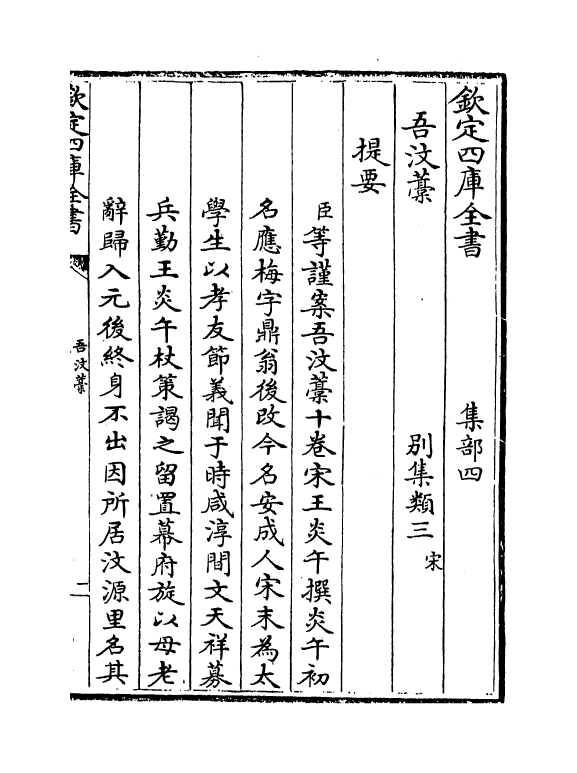 欽定四庫全書 集部四
吾汶藁 別集類三 宋
提要
臣等謹案吾汶藁十卷宋王炎午撰炎午初
名應梅字鼎翁後改今名安成人宋末為太
學生以孝友節義聞于時咸淳間文天祥募
兵勤王炎午杖策謁之留置幕府旋以母老
辭歸入元後終身不出因所居汶源里名其
欽定四庫全書
吾汶藁